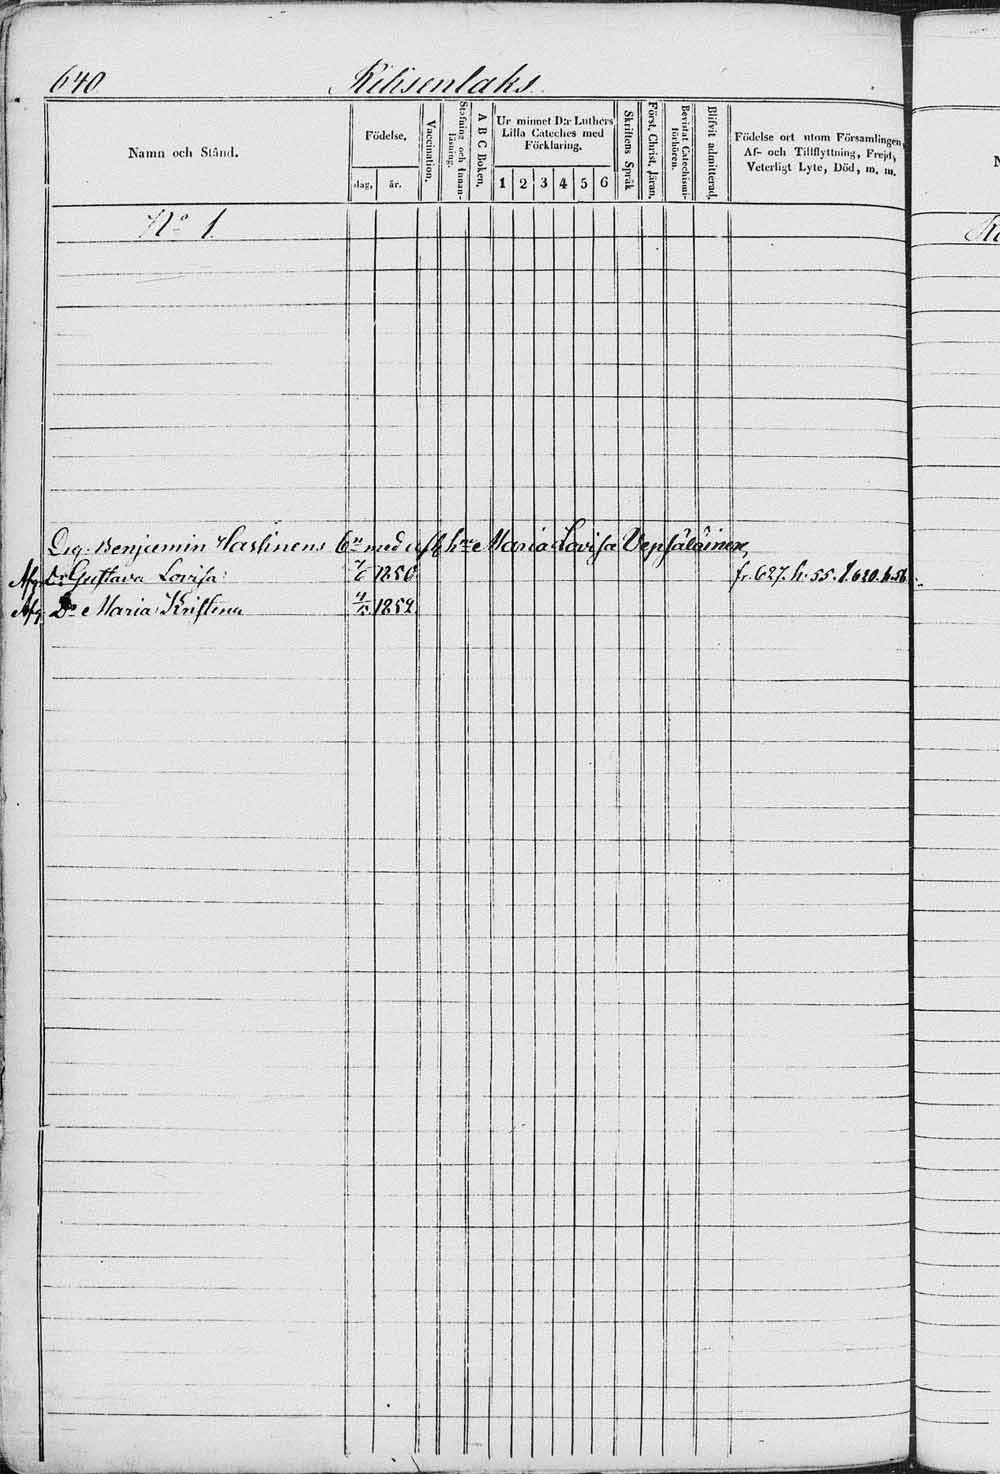 640 Riihisenlaks
Namn och Stånd.
Födelse,
dag, år.
Vaccination.
Stafning och Innan-läsning.
A B C Boken.
Ur minnet D:r Luthers
Lilla Cateches med
Förklaring.
1 2 3 4 5 6
Skriftens Språk
Först. Christ. Jaran.
Bevistat Catechismi-förhören.
Blifvit admitterad.
Födelse ort utom Församlingen,
Af- och Tillflyttning, Frejd,
Veterligt Lyte, Död, m. m.
N:o 1.
Drg. Benjamin Hassinens b:n med afl. h:u Maria Lovisa Vepsäläinen,
Afg. Dr Gustava Lovisa 7/6 1850 fr. 627. h. 55. t. 620. h. 56
Afg. Dr Maria Kristina 4/5 1852